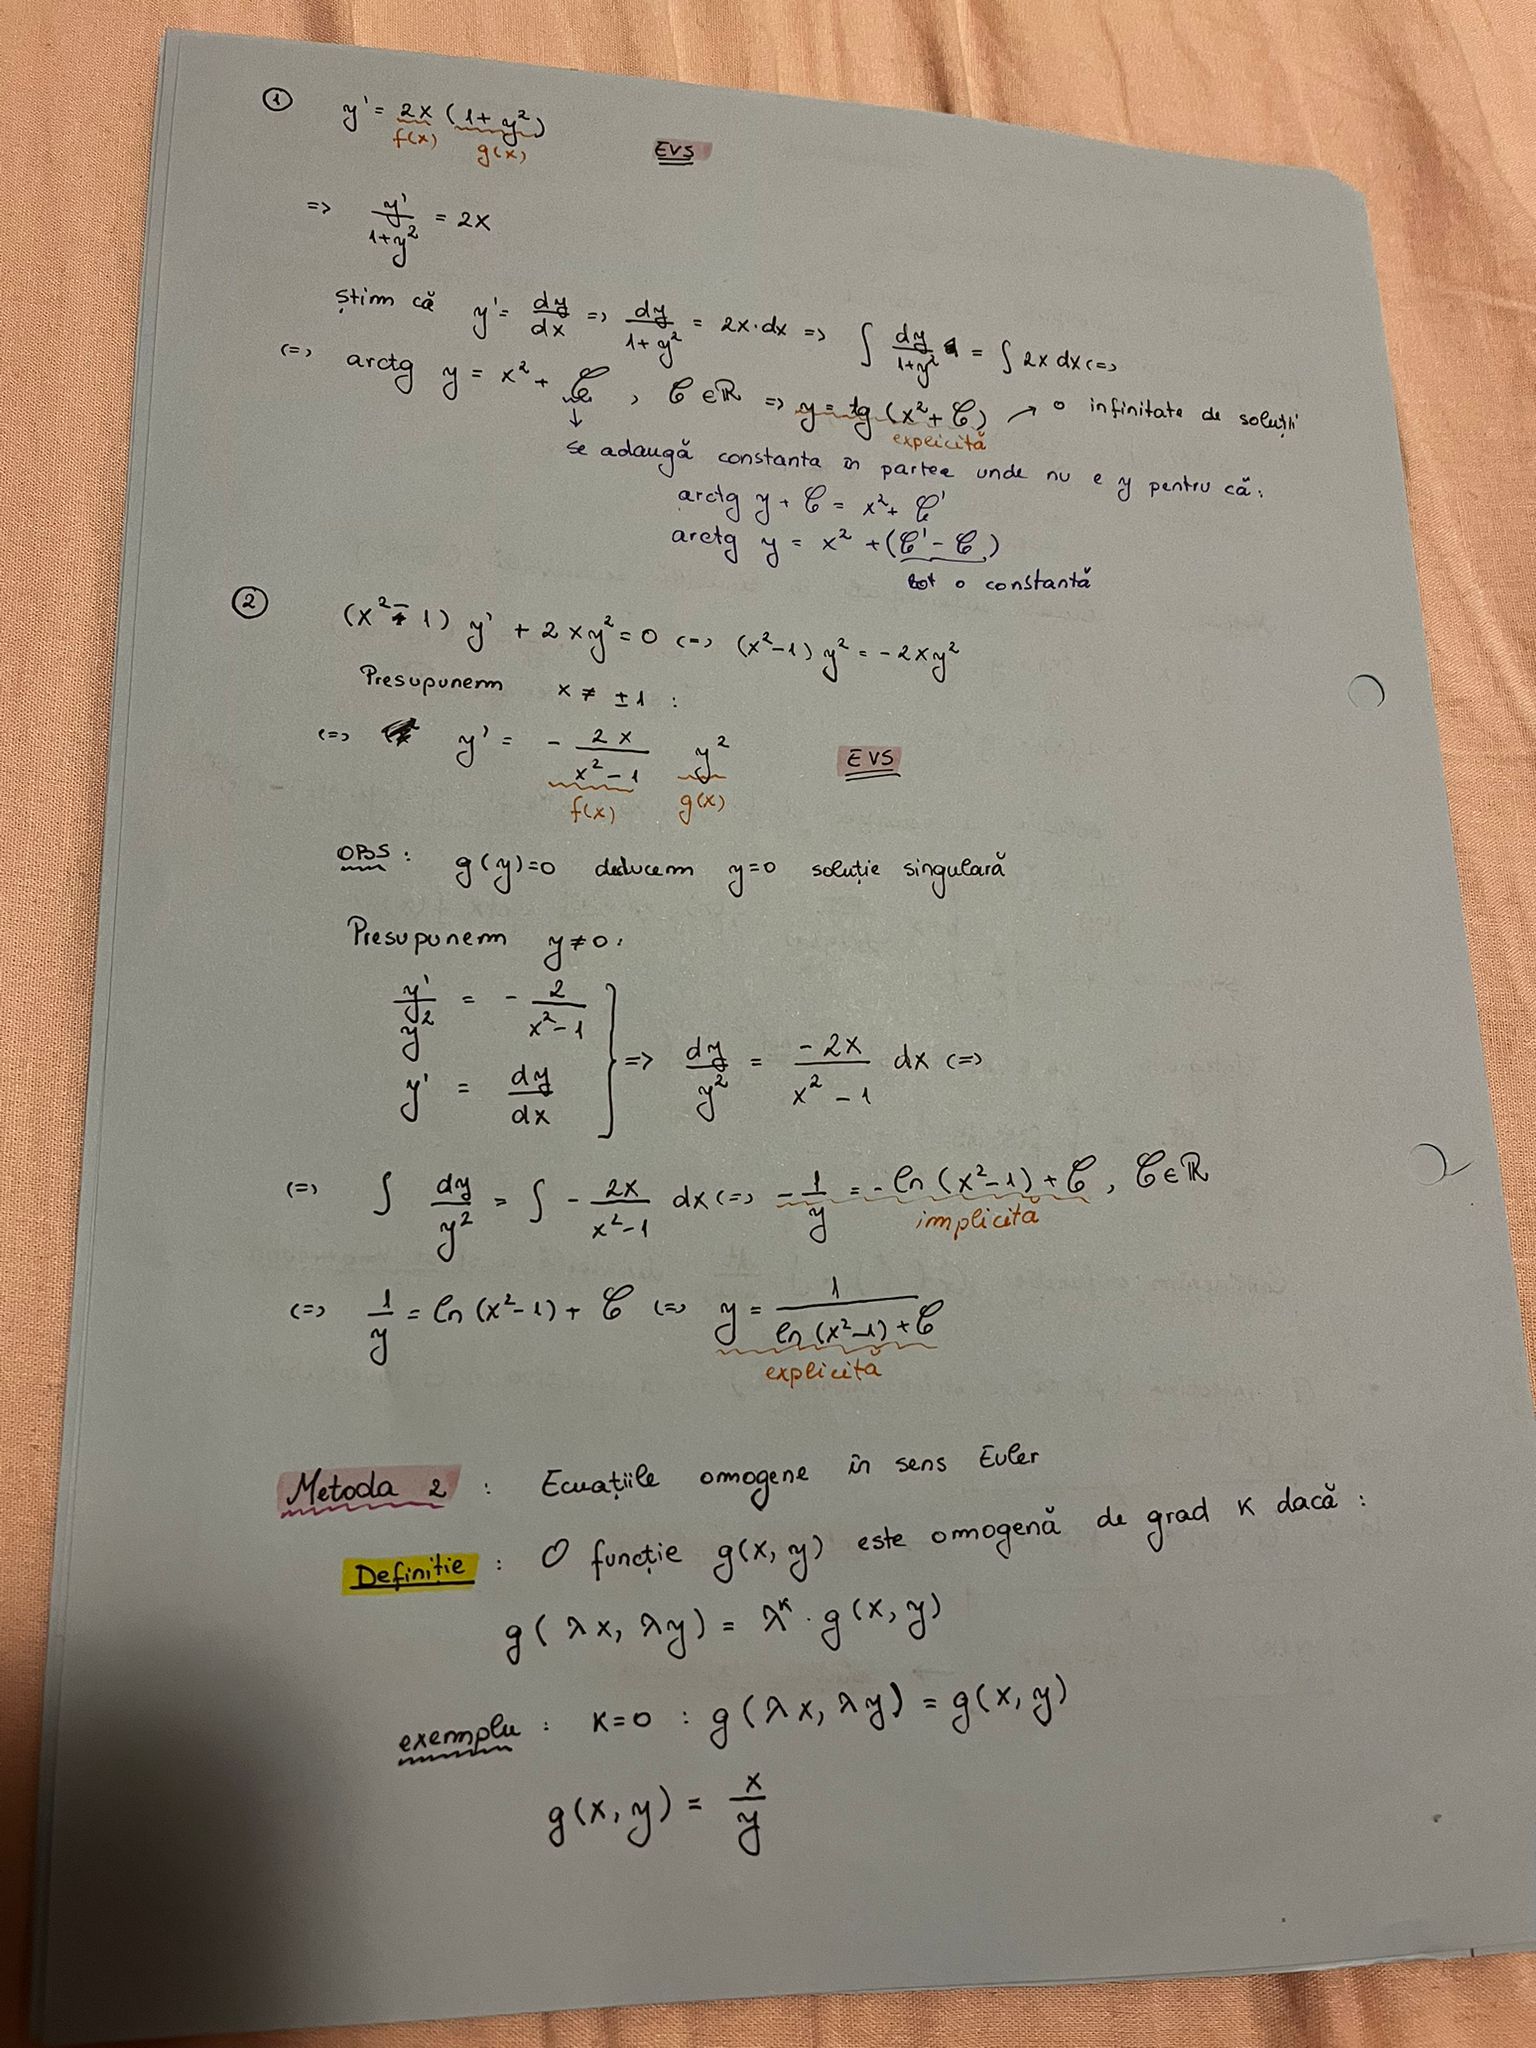 ① y' = 2x (1+y²)
f(x) g(x)
EVS
=> y'/(1+y²) = 2x
știm că y' = dy/dx => dy/(1+y²) = 2x·dx => ∫ dy/(1+y²) = ∫ 2x dx <=>
<=> arctg y = x² + C, C∈ℝ => y = tg (x²+C) → o infinitate de soluții
↓ explicită
se adaugă constanta în partea unde nu e y pentru că:
arctg y + C = x² + C'
arctg y = x² + (C' - C)
tot o constantă
② (x² - 1) y' + 2xy² = 0 <=> (x²-1) y² = -2xy²
Presupunem x ≠ ±1 :
<=> y' = - 2x/(x²-1) y² EVS
f(x) g(x)
OBS : g(y)=0 deducem y=0 soluție singulară
Presupunem y≠0:
y'/y² = - 2/(x²-1)
y' = dy/dx } => dy/y² = -2x/(x²-1) dx <=>
<=> ∫ dy/y² = ∫ - 2x/(x²-1) dx <=> -1/y = -ln (x²-1) + C, C∈ℝ
implicită
<=> 1/y = ln (x²-1) + C <=> y = 1/(ln (x²-1) + C)
explicită
Metoda 2 : Ecuațiile omogene în sens Euler
Definiție : O funcție g(x, y) este omogenă de grad K dacă :
g( λx, λy) = λᴷ · g(x, y)
exemplu : K=0 : g(λx, λy) = g(x, y)
g(x, y) = x/y